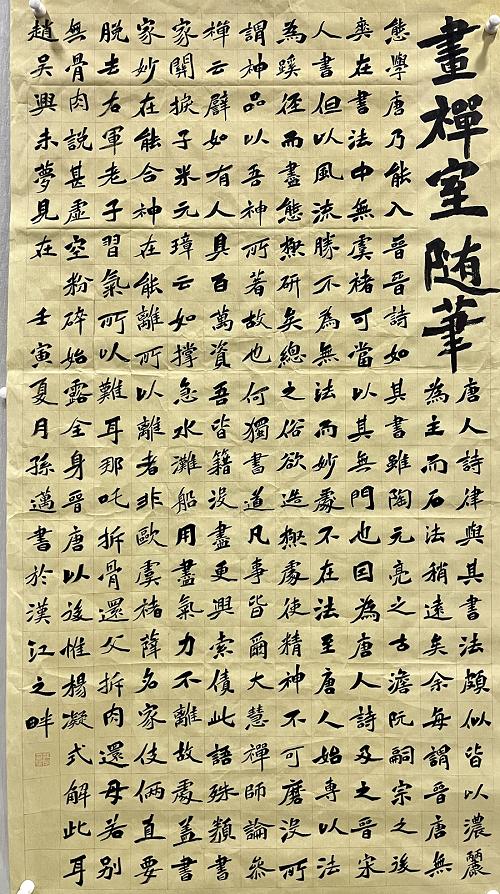 畫禪室随筆
唐人詩律與其書法頗似皆以濃麗
為主而石法稍遠矣余每謂晉唐無
態學唐乃能入晉晉詩如其書雖陶元亮之古澹阮嗣宗之後
爽在書法中無虞褚可當以其無門也因為唐人詩及之晉宋
人書但以風流勝不為無法而妙處不在法至唐人始專以法
為蹊徑而盡態極研矣總之俗欲造極處使精神不可磨没所
謂神品以吾神所著故也何獨書道凡事皆爾大慧禪師論參
禪云譬如有人具百萬資吾皆籍没盡更與索債此語殊類書
家關捩子米元璋云如撑急水灘船用盡氣力不離故處蓋書
家妙在能合神在能離所以離者非歐虞褚薛名家伎俩直要
脱去右軍老子習氣所以難耳那吒拆骨還父拆肉還母若别
無骨肉説甚虚空粉碎始露全身晉唐以後惟楊凝式解此耳
趙吳興未夢見在 壬寅夏月孫邁書於漢江之畔